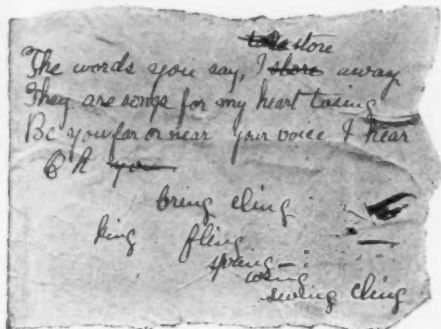 store
The words you say, I store away
They are songs for my heart to sing
Be you far or near your voice I hear
Oh you
bring cling
king fling
spring
wing
swing cling